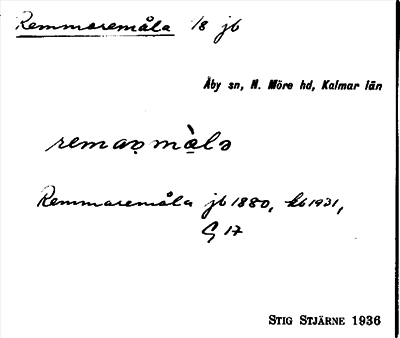 Remmaremåla 1/8 jb
Åby sn, N. Möre hd, Kalmar län
remaṛmằlə
Remmaremåla jb 1880, kb 1921,
G 17
STIG STJÄRNE 1936